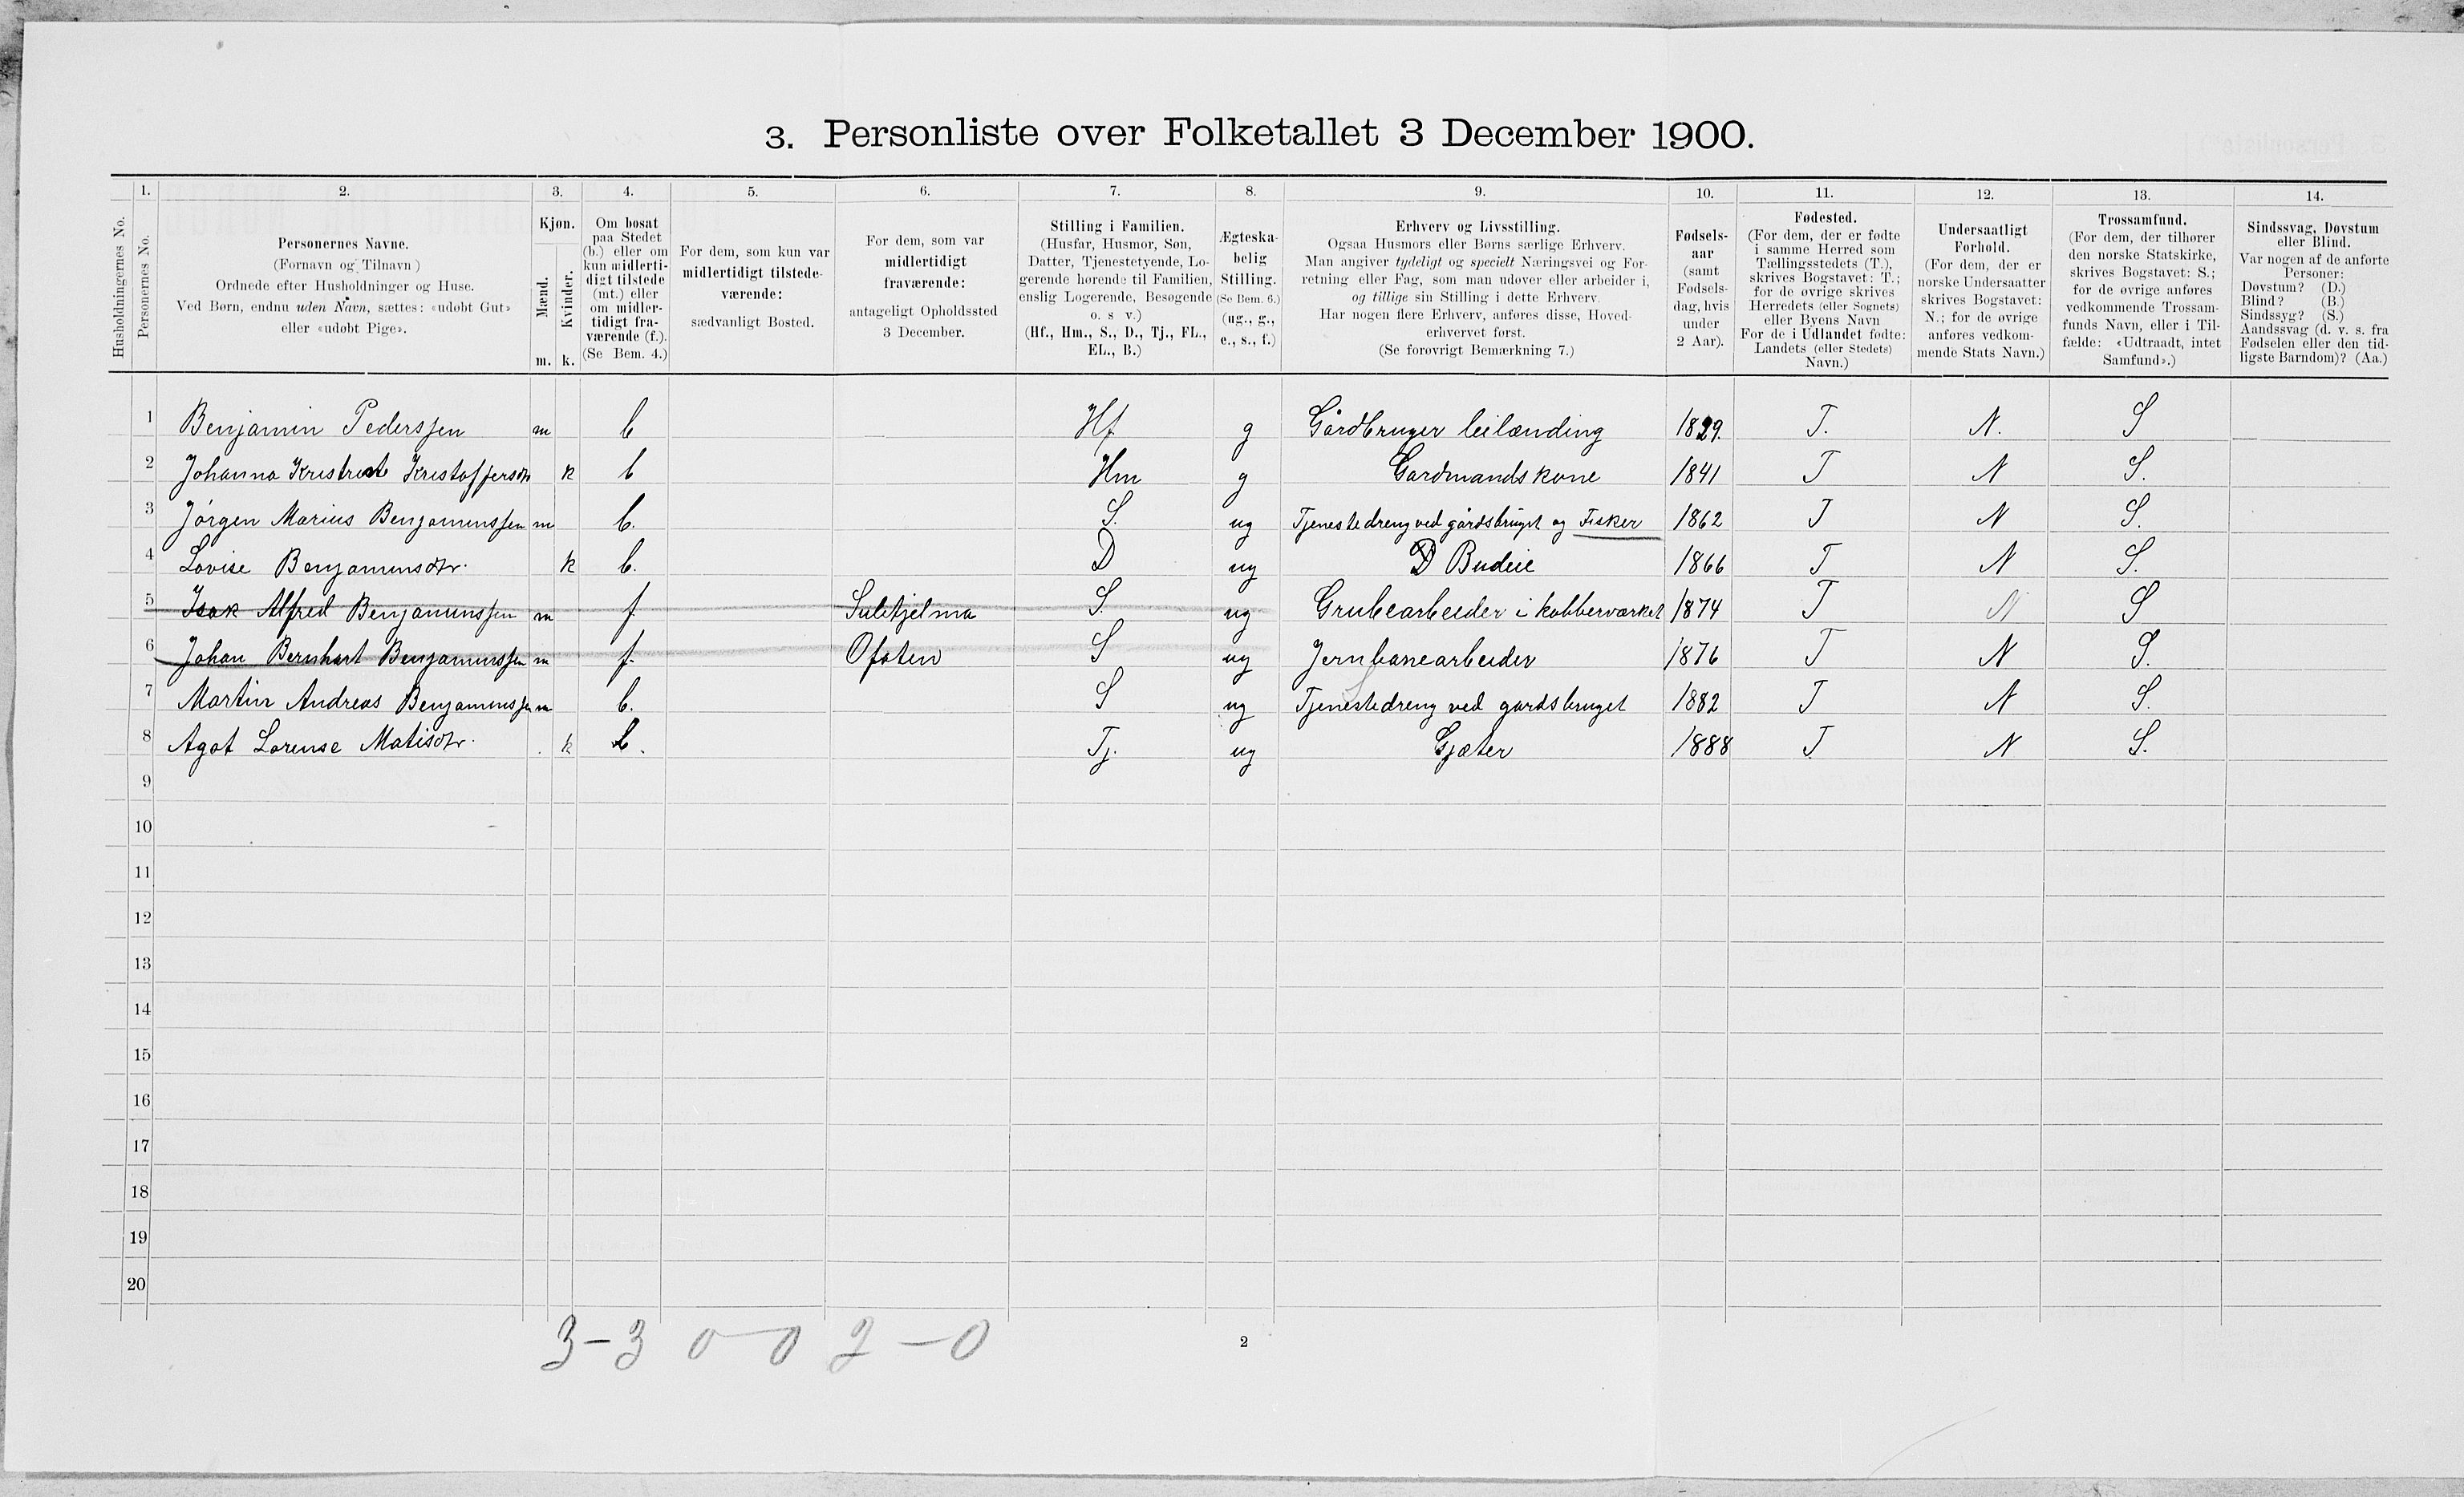 3. Personliste over Folketallet 3 December 1900.
Husholdningernes No.
1. Personernes No.
2. Personernes Navne.
(Fornavn og Tilnavn)
Ordnede efter Husholdninger og Huse.
Ved Børn, endnu uden Navn, sættes: «udøbt Gut»
eller «udøbt Pige».
3. Kjøn.
Mænd. m.
Kvinder. k.
4. Om bosat
paa Stedet
(b.) eller om
kun midlerti-
digt tilstede
(mt.) eller
om midler-
tidigt fra-
værende (f.).
(Se Bem. 4.)
5. For dem, som kun var
midlertidigt tilstede-
værende:
sædvanligt Bosted.
6. For dem, som var
midlertidigt
fraværende:
antageligt Opholdssted
3 December.
7. Stilling i Familien.
(Husfar, Husmor, Søn,
Datter, Tjenestetyende, Lo-
gerende hørende til Familien,
enslig Logerende, Besøgende
o. s v.)
(Hf., Hm., S., D., Tj., FL.,
EL., B.)
8. Ægteska-
belig
Stilling.
(Se Bem. 6.)
(ug., g.,
e., s., f.)
9. Erhverv og Livsstilling.
Ogsaa Husmors eller Børns særlige Erhverv.
Man angiver tydeligt og specielt Næringsvei og For-
retning eller Fag, som man udøver eller arbeider i,
og tillige sin Stilling i dette Erhverv.
Har nogen flere Erhverv, anføres disse, Hoved-
erhvervet først.
(Se forøvrigt Bemærkning 7.)
10. Fødsels-
aar
(samt
Fødsels-
dag, hvis
under
2 Aar).
11. Fødested.
(For dem, der er fødte
i samme Herred som
Tællingsstedets (T.),
skrives Bogstavet: T.;
for de øvrige skrives
Herredets (eller Sognets)
eller Byens Navn
For de i Udlandet fødte:
Landets (eller Stedets)
Navn.)
12. Undersaatligt
Forhold.
(For dem, der er
norske Undersaatter
skrives Bogstavet:
N.; for de øvrige
anføres vedkom-
mende Stats Navn.)
13. Trossamfund.
(For dem, der tilhører
den norske Statskirke,
skrives Bogstavet: S.;
for de øvrige anføres
vedkommende Trossam-
funds Navn, eller i Til-
fælde: «Udtraadt, intet
Samfund».)
14. Sindssvag, Døvstum
eller Blind.
Var nogen af de anførte
Personer:
Døvstum? (D.)
Blind? (B.)
Sindssyg? (S.)
Aandssvag (d. v. s. fra
Fødselen eller den tid-
ligste Barndom)? (Aa.)
1 Benjamin Pederssen m b Hf g Gårdbruger leilænding 1829. T. N. S
2 Johanna Kristoffersdtr k b Hm g Gardmandskone 1841 T N S.
3 Jørgen Marius Benjaminssen m b. S. ug Tjenestedreng ved gårdsbruget og Fisker 1862 T N S.
4 Lovise Benjaminsdtr. k b. D ug D Budeie 1866 T N S.
5 Isak Alfred Benjaminssen m f Sulitjelma S. ug Grubearbeider i kobberværket 1874 T N S
6 Johan Bernhart Benjaminssen m f. Ofoten S ug Jernbanearbeider 1876 T N S.
7 Martin Andreas Benjaminssen m b. S ug Tjenestedreng ved gardsbruget 1882 T N S.
8 Agot Lorense Matisdtr. k b. Tj. ug Gjæter 1888 T N S.
9
10
11
12
13
14
15
16
17
18
19
20
3-3 0-0 2-0
2